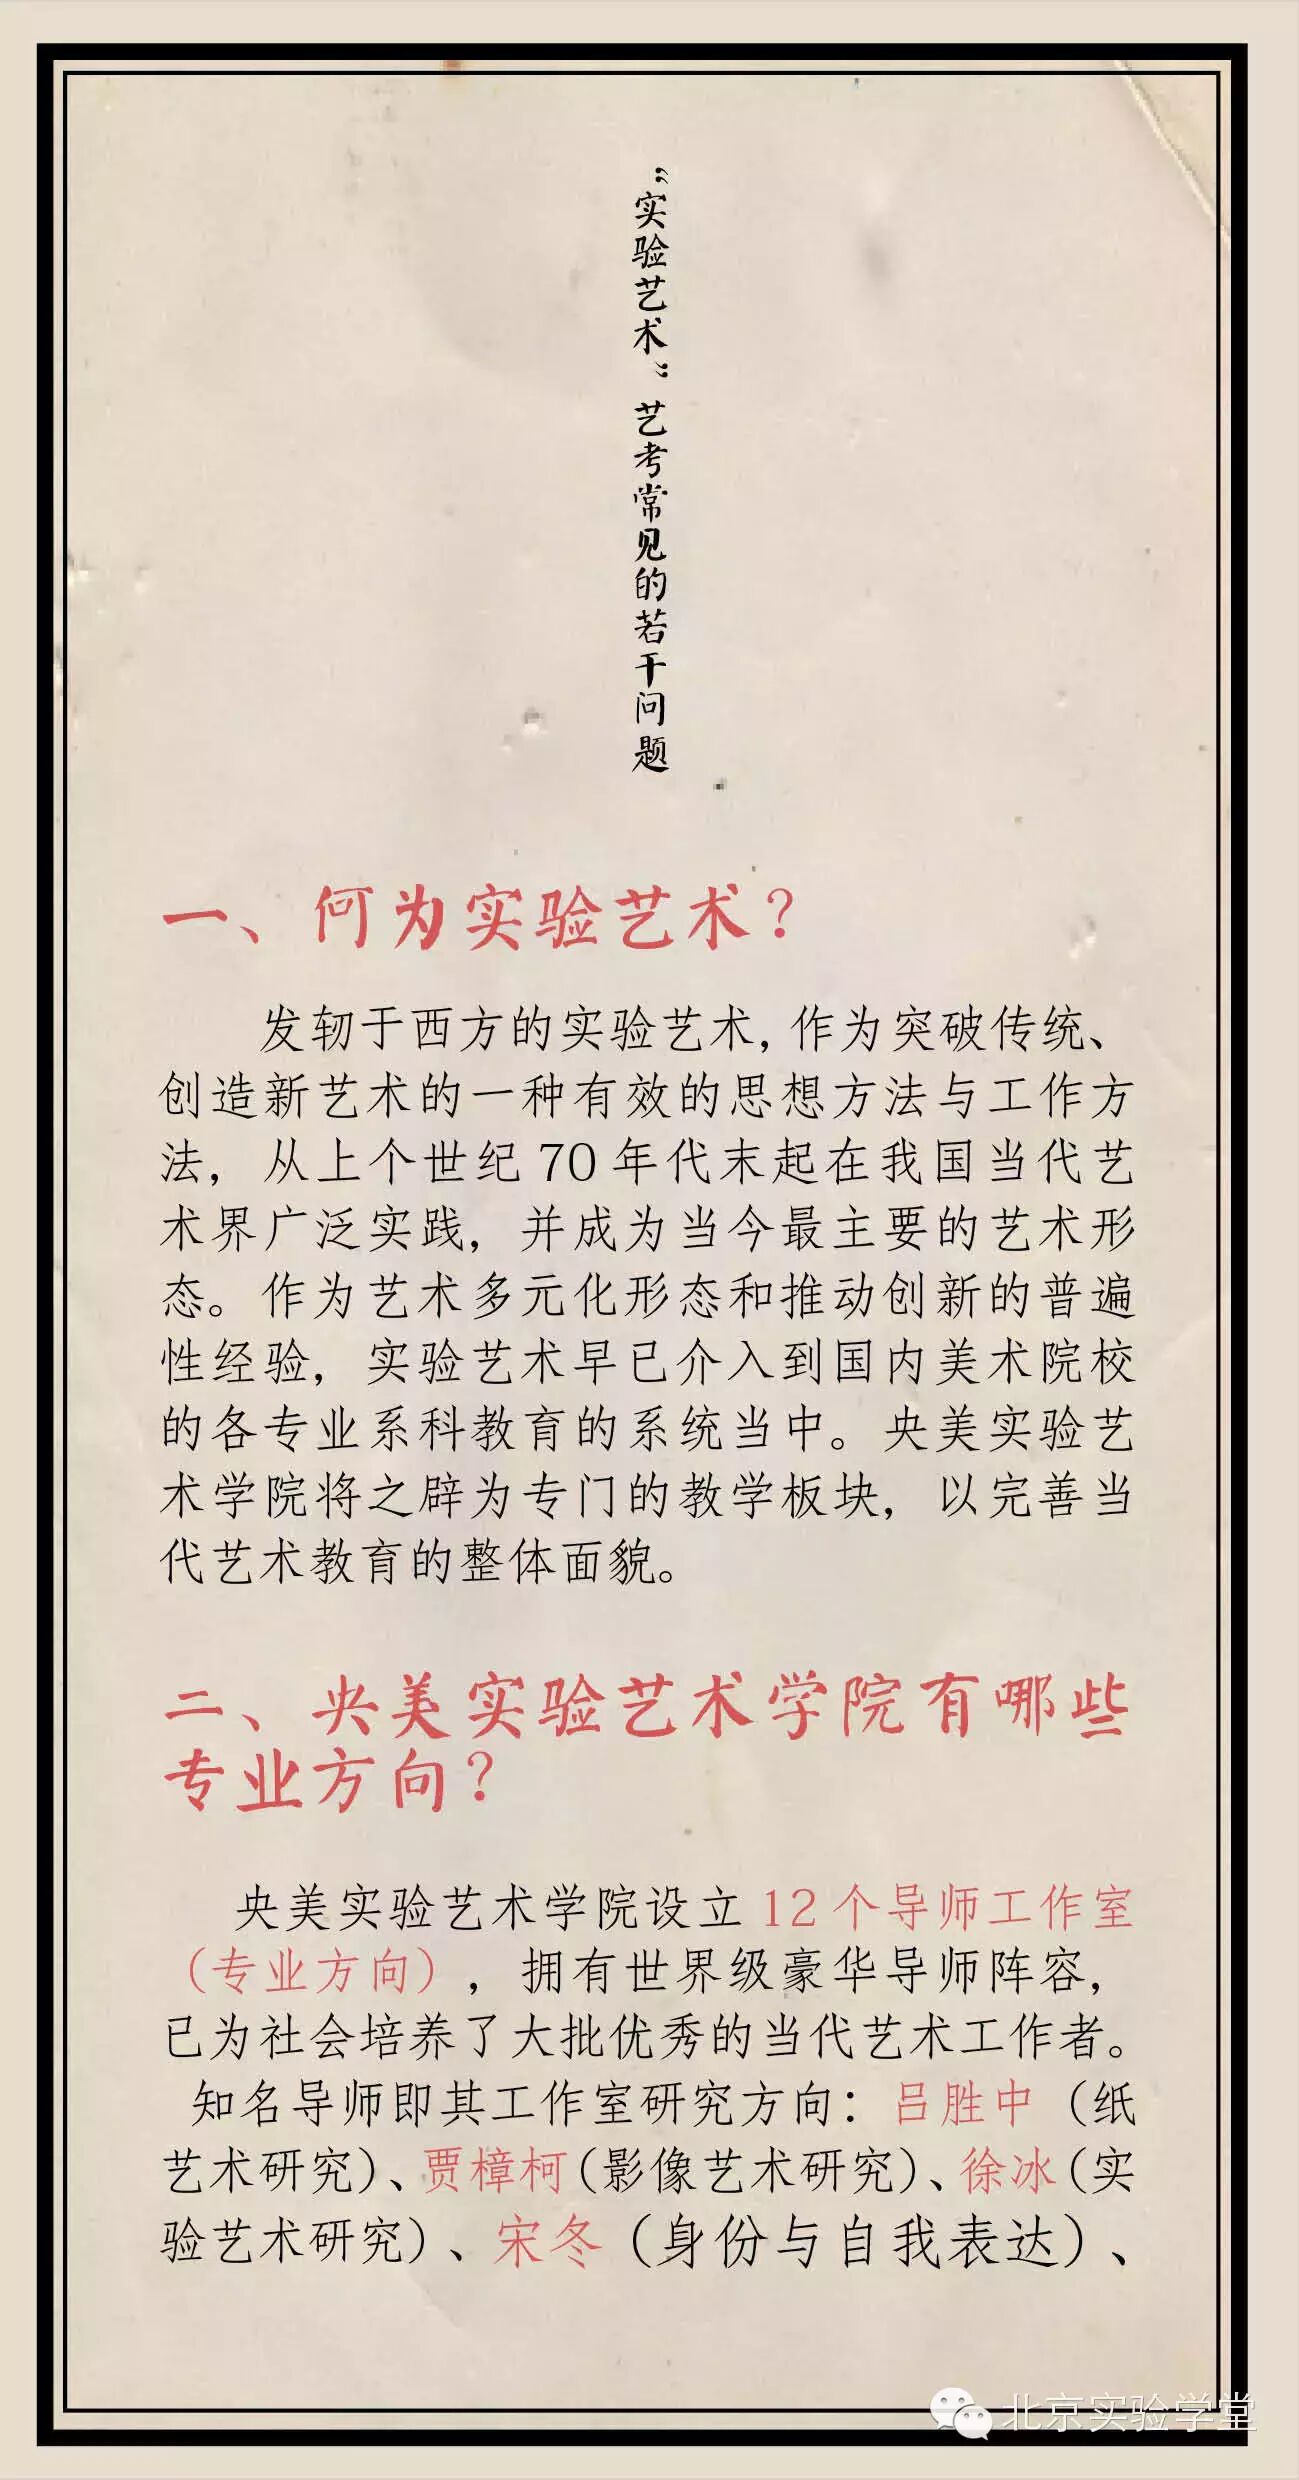 “实验艺术”艺考常见的若干问题
一、何为实验艺术？
发轫于西方的实验艺术，作为突破传统、
创造新艺术的一种有效的思想方法与工作方
法，从上个世纪70年代末起在我国当代艺
术界广泛实践，并成为当今最主要的艺术形
态。作为艺术多元化形态和推动创新的普遍
性经验，实验艺术早已介入到国内美术院校
的各专业系科教育的系统当中。央美实验艺
术学院将之辟为专门的教学板块，以完善当
代艺术教育的整体面貌。
二、央美实验艺术学院有哪些
专业方向？
央美实验艺术学院设立12个导师工作室
（专业方向），拥有世界级豪华导师阵容，
已为社会培养了大批优秀的当代艺术工作者。
知名导师即其工作室研究方向：吕胜中（纸
艺术研究）、贾樟柯（影像艺术研究）、徐冰（实
验艺术研究）、宋冬（身份与自我表达）、
北京实验学堂